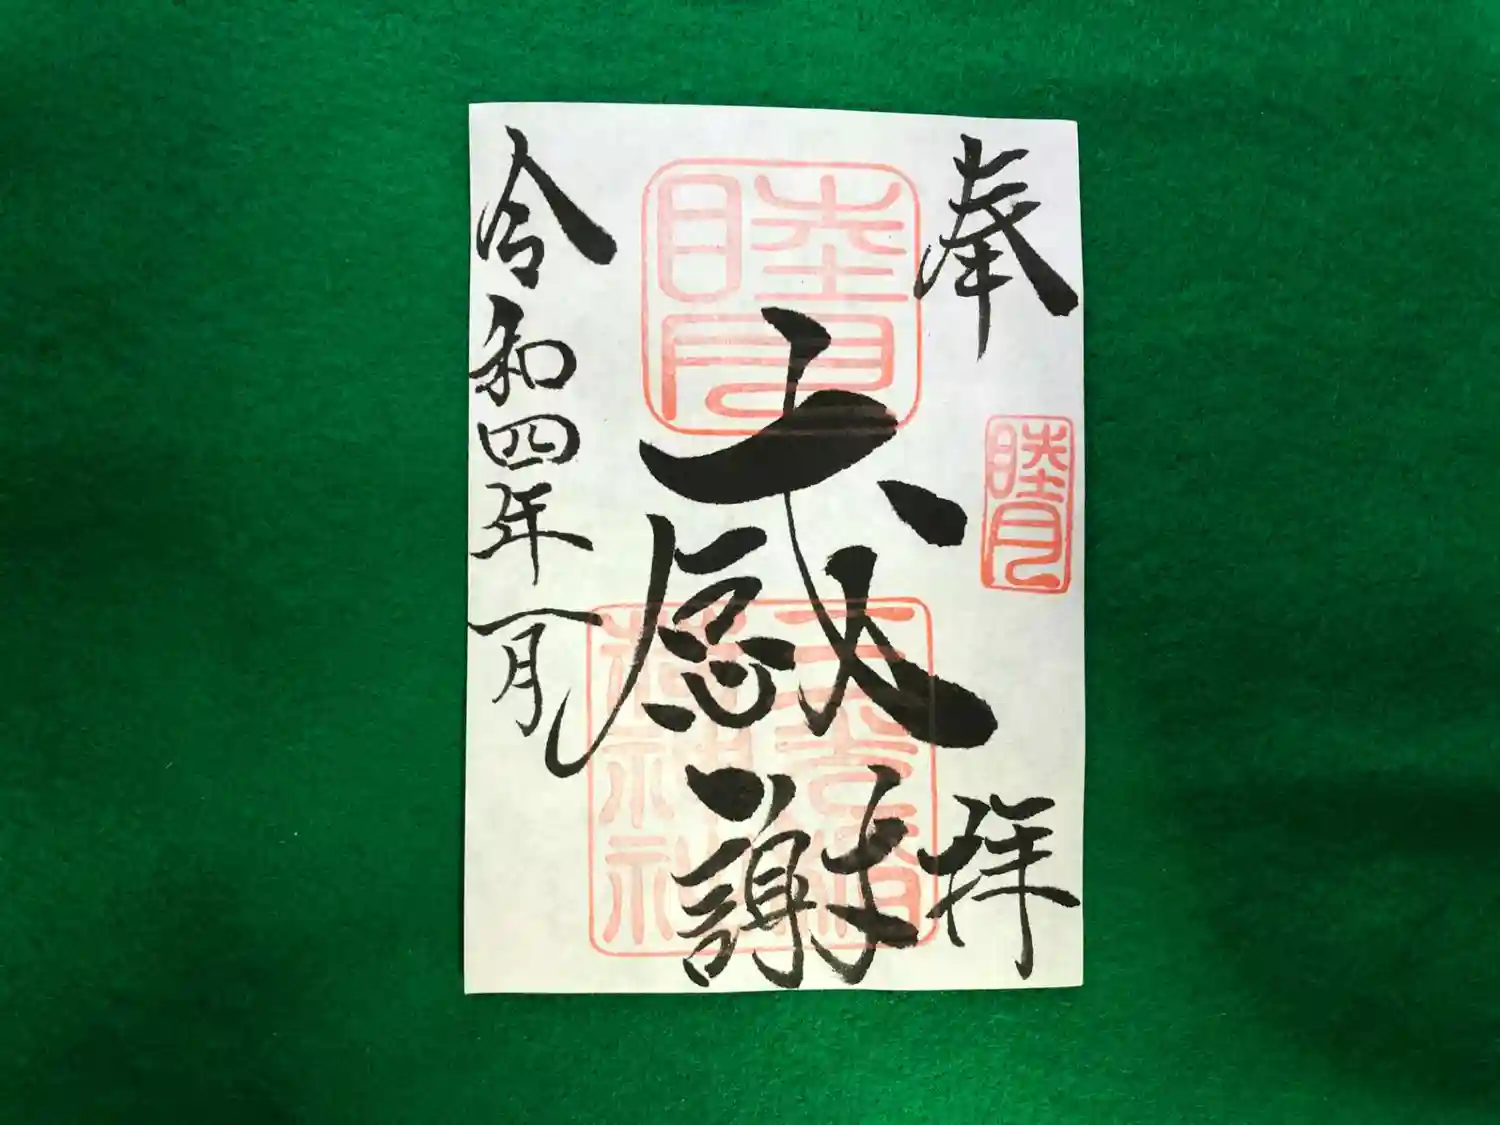 奉拝
睦月
睦月
感謝
令和四年一月
神社